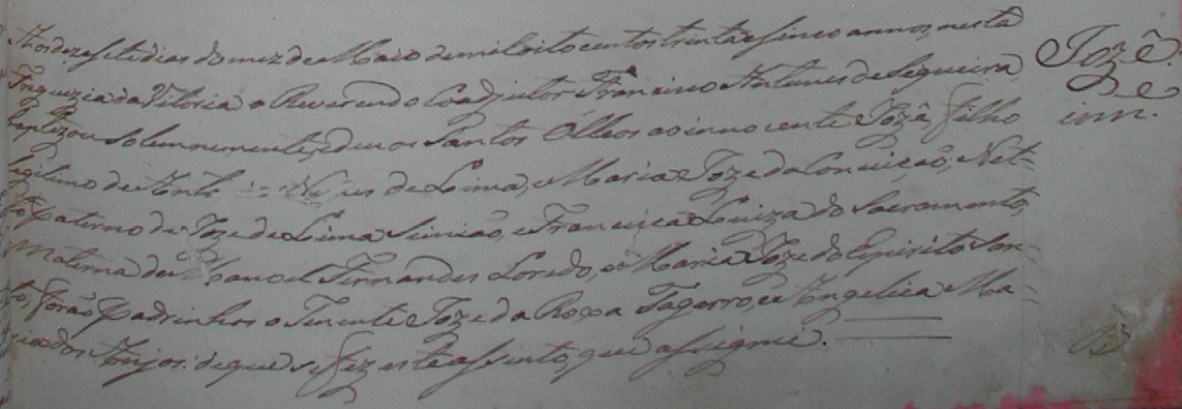 Aos dezasete dias do mez de Maio de mil oito centos trinta e sinco annos, nesta
Freguezia da Vitoria o Reverendo Coadjutor Francino Antunes de Sequeira
baptizou solemnemente, e deu os Santos Olleos ao innocente Jozê, filho
legitimo de de Lima, e Maria Joze da Conceição, Net-
to paterno de Joze de Lima Simião, e Francisca Luiza do Sacramento,
materno de Manoel Fernandes Loredo, e Maria Joze do Espirito San-
to, forão Padrinhos o Tenente Joze da Roxa Tagorro, e Angelica Ma-
ria dos Anjos: de que se fez este assento, que assignei.
Jozê.
inn.